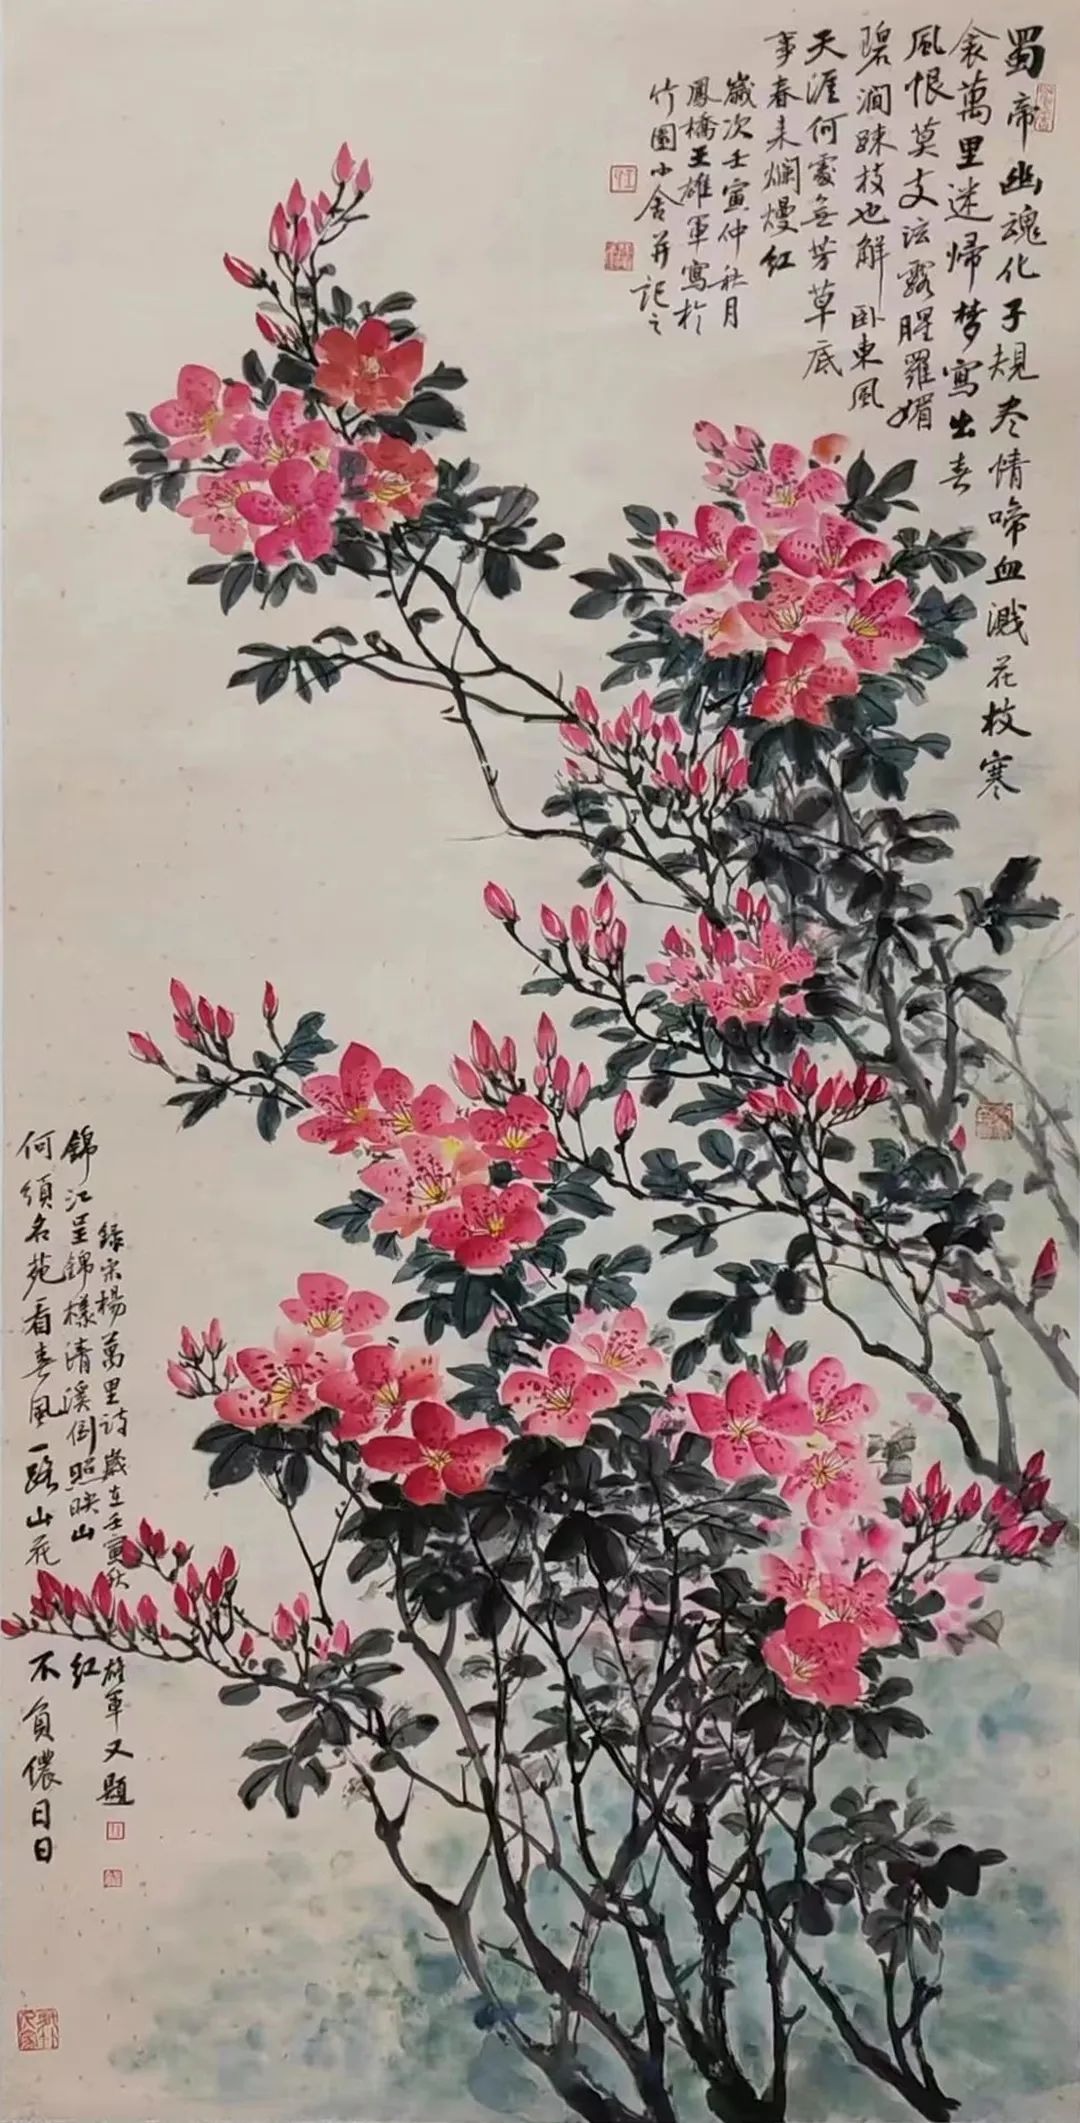 蜀帝幽魂化子規尽情啼血濺花枝寒
衾萬里迷帰梦寫出春
風恨莫支泫露腥羅媚
碧澗踈枝也解卧東風
天涯何處無芳草底
事春来爛熳紅
嵗次壬寅仲秋月
鳳橋王雄軍寫於
竹園小舍并記之
何須名苑看春風一路山花不負儂日日
錦江呈錦樣清溪倒照映山紅
録宋楊萬里詩嵗在壬寅秋雄軍又題